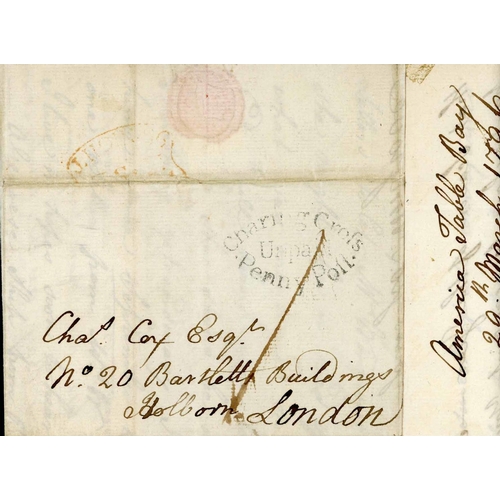 Charing Croſs
Unpaid
Penny Poſt.
Chaˢ. Cox Esqʳ.
No. 20 Bartletts Buildings
Holborn London
America Table Bay
29th March 1796